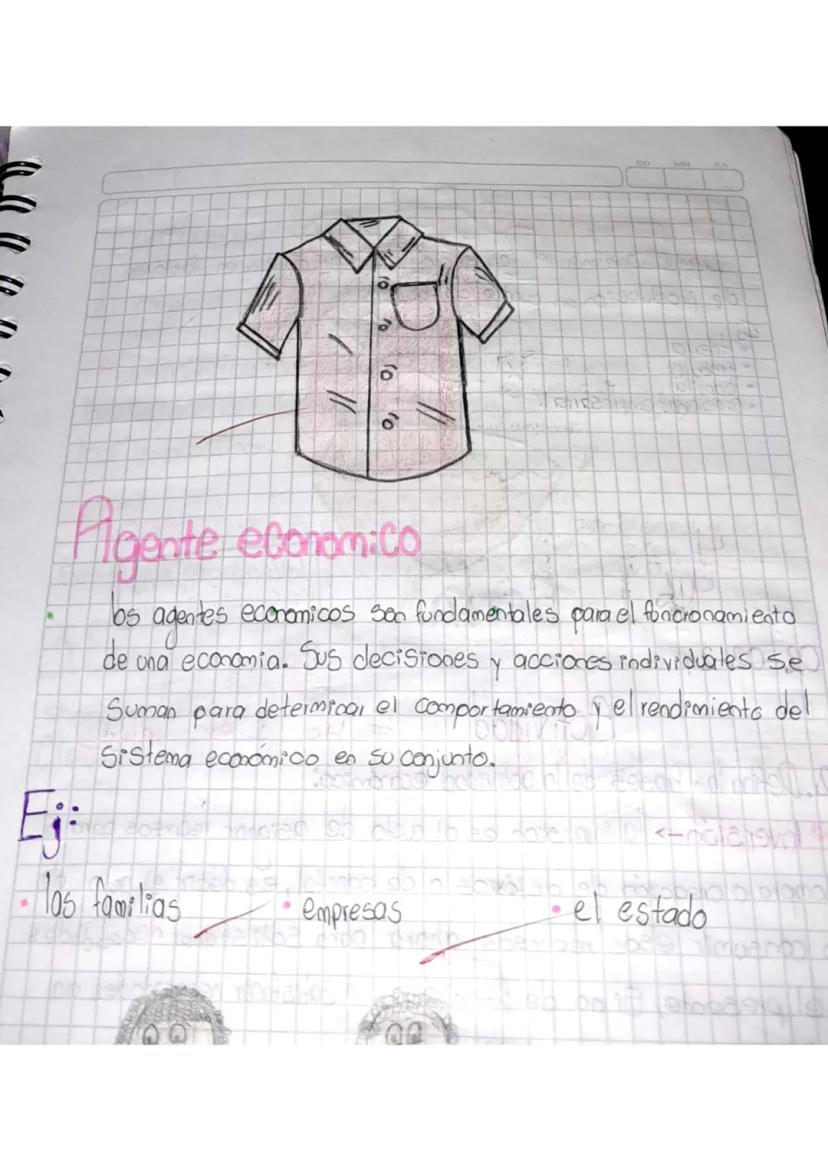 Agente economico
los agentes economicos son fundamentales para el funcionamiento
de una economia. Sus decisiones y acciones individuales se
suman para determinar el comportamiento y el rendimiento del
sistema económico en su conjunto.
Ej:
• las familias • empresas • el estado